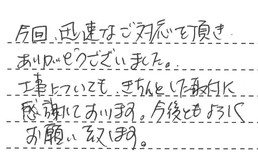 今回、迅速なご対応を頂き
ありがとうございました。
工事についても、きちんとした取付に
感謝しております。今後ともよろしく
お願い致します。